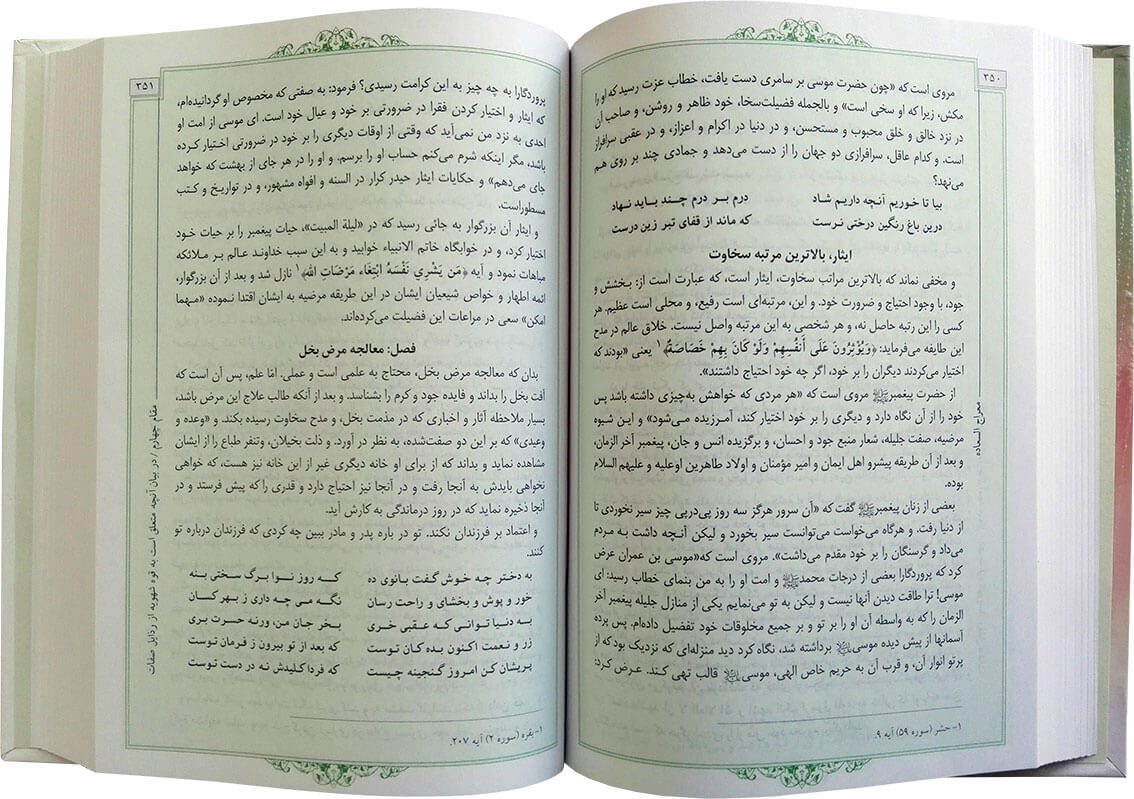 ۳۵۰
مروی است که «چون حضرت موسی بر سامری دست یافت، خطاب عزت رسید که او را
مکش، زیرا که او سخی است» و بالجمله فضیلت‌سخا، خود ظاهر و روشن، و صاحب آن
در نزد خالق و خلق محبوب و مستحسن، و در دنیا در اکرام و اعزاز، و در عقبی سرافراز
است. و کدام عاقل، سرافرازی دو جهان را از دست می‌دهد و جمادی چند بر روی هم
می‌نهد؟
بیا تا خوریم آنچه داریم شاد درم بر درم چند باید نهاد
درین باغ رنگین درختی نرست که ماند از قفای تبر زین درست
ایثار، بالاترین مرتبه سخاوت
و مخفی نماند که بالاترین مراتب سخاوت، ایثار است، که عبارت است از: بخشش و
جود، با وجود احتیاج و ضرورت خود. و این، مرتبه‌ای است رفیع، و محلی است عظیم. هر
کسی را این رتبه حاصل نه، و هر شخصی به این مرتبه واصل نیست. خلاق عالم در مدح
این طایفه می‌فرماید: ﴿وَيُؤْثِرُونَ عَلَى أَنفُسِهِمْ وَلَوْ كَانَ بِهِمْ خَصَاصَةٌ﴾۱ یعنی «بودند که
اختیار می‌کردند دیگران را بر خود، اگر چه خود احتیاج داشتند».
از حضرت پیغمبرﷺ مروی است که «هر مردی که خواهش به‌چیزی داشته باشد پس
خود را از آن نگاه دارد و دیگری را بر خود اختیار کند، آمرزیده می‌شود» و این شیوه
مرضیه، صفت جلیله، شعار منبع جود و احسان، و برگزیده انس و جان، پیغمبر آخر الزمان،
و بعد از آن طریقه پیشرو اهل ایمان و امیر مؤمنان و اولاد طاهرین اوعلیه و علیهم السلام
بوده.
بعضی از زنان پیغمبرﷺ گفت که «آن سرور هرگز سه روز پی‌درپی چیز سیر نخوردی تا
از دنیا رفت. و هرگاه می‌خواست می‌توانست سیر بخورد و لیکن آنچه داشت به مردم
می‌داد و گرسنگان را بر خود مقدم می‌داشت». مروی است که«موسی بن عمران عرض
کرد که پروردگارا بعضی از درجات محمدﷺ و امت او را به من بنمای خطاب رسید: ای
موسی! ترا طاقت دیدن آنها نیست و لیکن به تو می‌نمایم یکی از منازل جلیله پیغمبر آخر
الزمان را که به واسطه آن او را بر تو و بر جمیع مخلوقات خود تفضیل داده‌ام. پس پرده
آسمانها از پیش دیده موسی برداشته شد، نگاه کرد دید منزله‌ای که نزدیک بود که از
پرتو انوار آن، و قرب آن به حریم خاص الهی، موسی قالب تهی کند. عرض کرد:
۱- حشر (سوره ۵۹) آیه ۹.
معراج السعاده
۳۵۱
پروردگارا به چه چیز به این کرامت رسیدی؟ فرمود: به صفتی که مخصوص او گردانیده‌ام،
که ایثار و اختیار کردن فقرا در ضرورتی بر خود و عیال خود است. ای موسی از امت او
احدی به نزد من نمی‌آید که وقتی از اوقات دیگری را بر خود در ضرورتی اختیار کرده
باشد، مگر اینکه شرم می‌کنم حساب او را برسم. و او را در هر جای از بهشت که خواهد
جای می‌دهم» و حکایات ایثار حیدر کرار در السنه و افواه مشهور، و در تواریخ و کتب
مسطوراست.
و ایثار آن بزرگوار به جائی رسید که در «لیلة المبیت»، حیات پیغمبر را بر حیات خود
اختیار کرد، و در خوابگاه خاتم الانبیاء خوابید و به این سبب خداوند عالم بر ملائکه
مباهات نمود و آیه ﴿مَن يَشْرِي نَفْسَهُ ابْتِغَاء مَرْضَاتِ اللّه﴾۱ نازل شد و بعد از آن بزرگوار،
ائمه اطهار و خواص شیعیان ایشان در این طریقه مرضیه به ایشان اقتدا نموده «مهما
امکن» سعی در مراعات این فضیلت می‌کرده‌اند.
فصل: معالجه مرض بخل
بدان که معالجه مرض بخل، محتاج به علمی است و عملی. امّا علم، پس آن است که
آفت بخل را بداند و فایده جود و کرم را بشناسد. و بعد از آنکه طالب علاج این مرض باشد،
بسیار ملاحظه آثار و اخباری که در مذمت بخل، و مدح سخاوت رسیده بکند. و «وعده و
وعیدی» که بر این دو صفت‌شده، به نظر در آورد. و ذلت بخیلان، وتنفر طباع را از ایشان
مشاهده نماید و بداند که از برای او خانه دیگری غیر از این خانه نیز هست، که خواهی
نخواهی بایدش به آنجا رفت و در آنجا نیز احتیاج دارد و قدری را که پیش فرستد و در
آنجا ذخیره نماید که در روز درماندگی به کارش آید.
و اعتماد بر فرزندان نکند. تو در باره پدر و مادر ببین چه کردی که فرزندان درباره تو
کنند.
به دختر چه خوش گفت بانوی ده که روز نوا برگ سختی بنه
خور و پوش و بخشای و راحت رسان نگه می چه داری ز بهر کسان
به دنیا توانی که عقبی خری بخر جان من، ورنه حسرت بری
زر و نعمت اکنون بده کان توست که بعد از تو بیرون ز فرمان توست
پریشان کن امروز گنجینه چیست که فردا کلیدش نه در دست توست
۱- بقره (سوره ۲) آیه ۲۰۷.
مقام چهارم / در بیان آنچه متعلق است به قوه شهویه از رذایل صفات